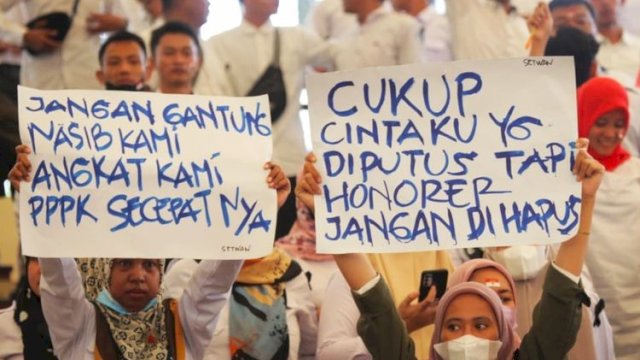 JANGAN GANTUNG
NASIB KAMI
ANGKAT KAMI
PPPK SECEPATNYA
SETWAN
SETWAN
CUKUP
CINTAKU YG
DIPUTUS TAPI
HONORER
JANGAN DI HAPUS